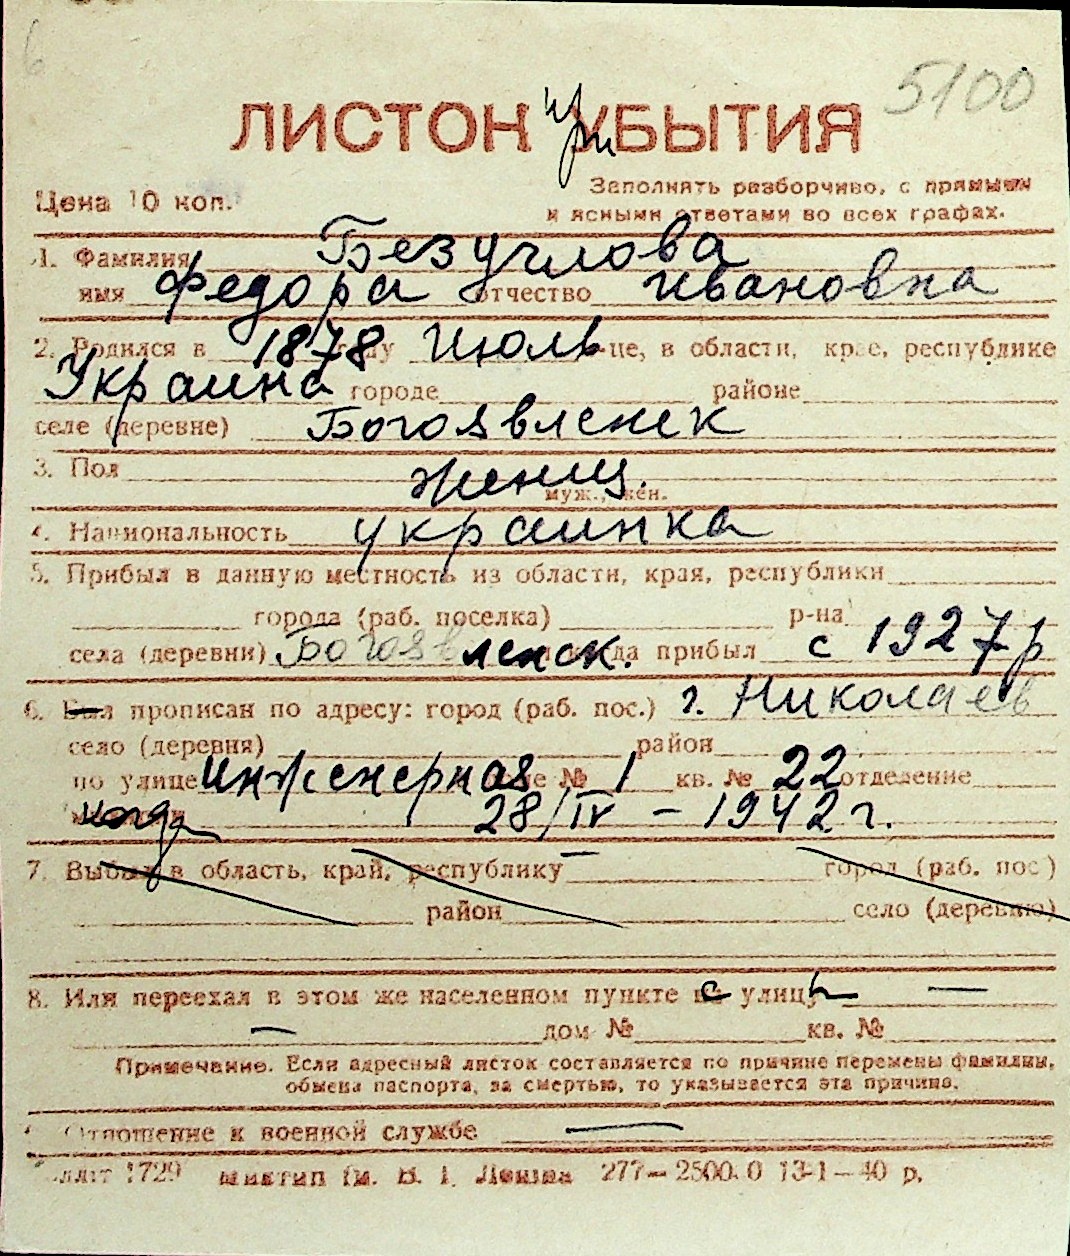 6
5100
ЛИСТОК при УБЫТИЯ
Цена 10 коп.
Заполнять разборчиво, с прямыми
и ясными ответами во всех графах.
1. Фамилия Безуглова
имя Федора отчество Ивановна
2. Родился в 1878 году Июль -це, в области, крае, республике
Украина городе районе
селе (деревне) Богоявленск
3. Пол женщ.
муж., жен.
4. Национальность украинка
5. Прибыл в данную местность из области, края, республики
города (раб. поселка) р-на
села (деревни) Богоявленск. когда прибыл с 1927 р
6. Был прописан по адресу: город (раб. пос.) г. Николаев
село (деревня) район
по улице Инженерная № 1 кв. № 22 отделение
когда 28/IV - 1942 г.
7. Выбыл в область, край, республику город (раб. пос.)
район село (деревню)
8. Или переехал в этом же населенном пункте с улицы —
— дом № кв. №
Примечание. Если адресный листок составляется по причине перемены фамилии,
обмена паспорта, за смертью, то указывается эта причина.
Отношение к военной службе —
1729 им. В. І. Леніна 277—2500.0 13-1—40 р.